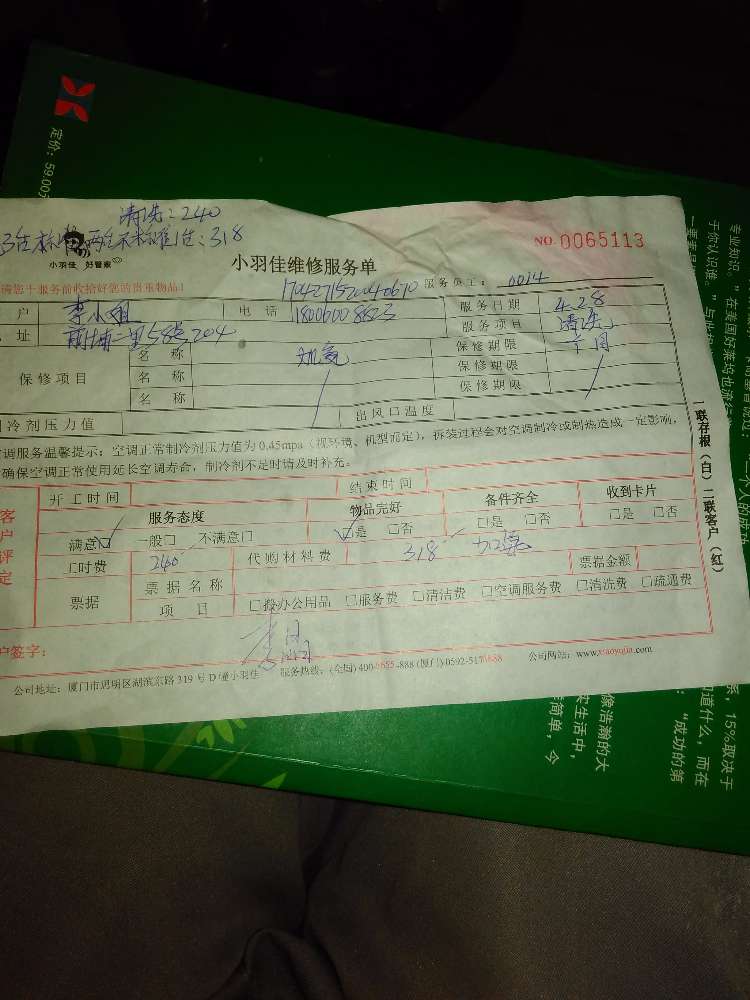 定价：59.00
清洗：240
318
小羽佳 好管家
NO.0065113
小羽佳维修服务单
请您于服务前收拾好您的贵重物品！
服务员工： 0014
户 李小姐 电 话 18006008823 服务日期 4.28
址 204 服务项目 清洗
保修项目 名 称 保修期限 一个月
名 称 保修期限
名 称 保修期限
冷剂压力值 出风口温度
调服务温馨提示：空调正常制冷剂压力值为0.45mpa（视环境、机型而定），拆装过程会对空调制冷或制热造成一定影响，
确保空调正常使用延长空调寿命，制冷剂不足时请及时补充。
客户评定
开工时间 结束时间
服务态度 物品完好 备件齐全 收到卡片
满意 一般 不满意 是 否 是 否 是 否
工时费 240 代购材料费 318 票据金额
票据 票据名称
项 目 搬办公用品 服务费 清洁费 空调服务费 清洗费 疏通费
户签字：
公司地址：厦门市思明区湖滨东路319号D幢小羽佳 服务热线：(全国)400-6655-888 (厦门)0592-5176688 公司网站：www.xiaoyujia.com
一联存根（白）二联客户（红）
专业知识。”在美国好莱坞也流
于你认识谁。”与此
系，15%取决于
知道什么，而在
“成功的第
像浩瀚的大
实生活中，
简单，今